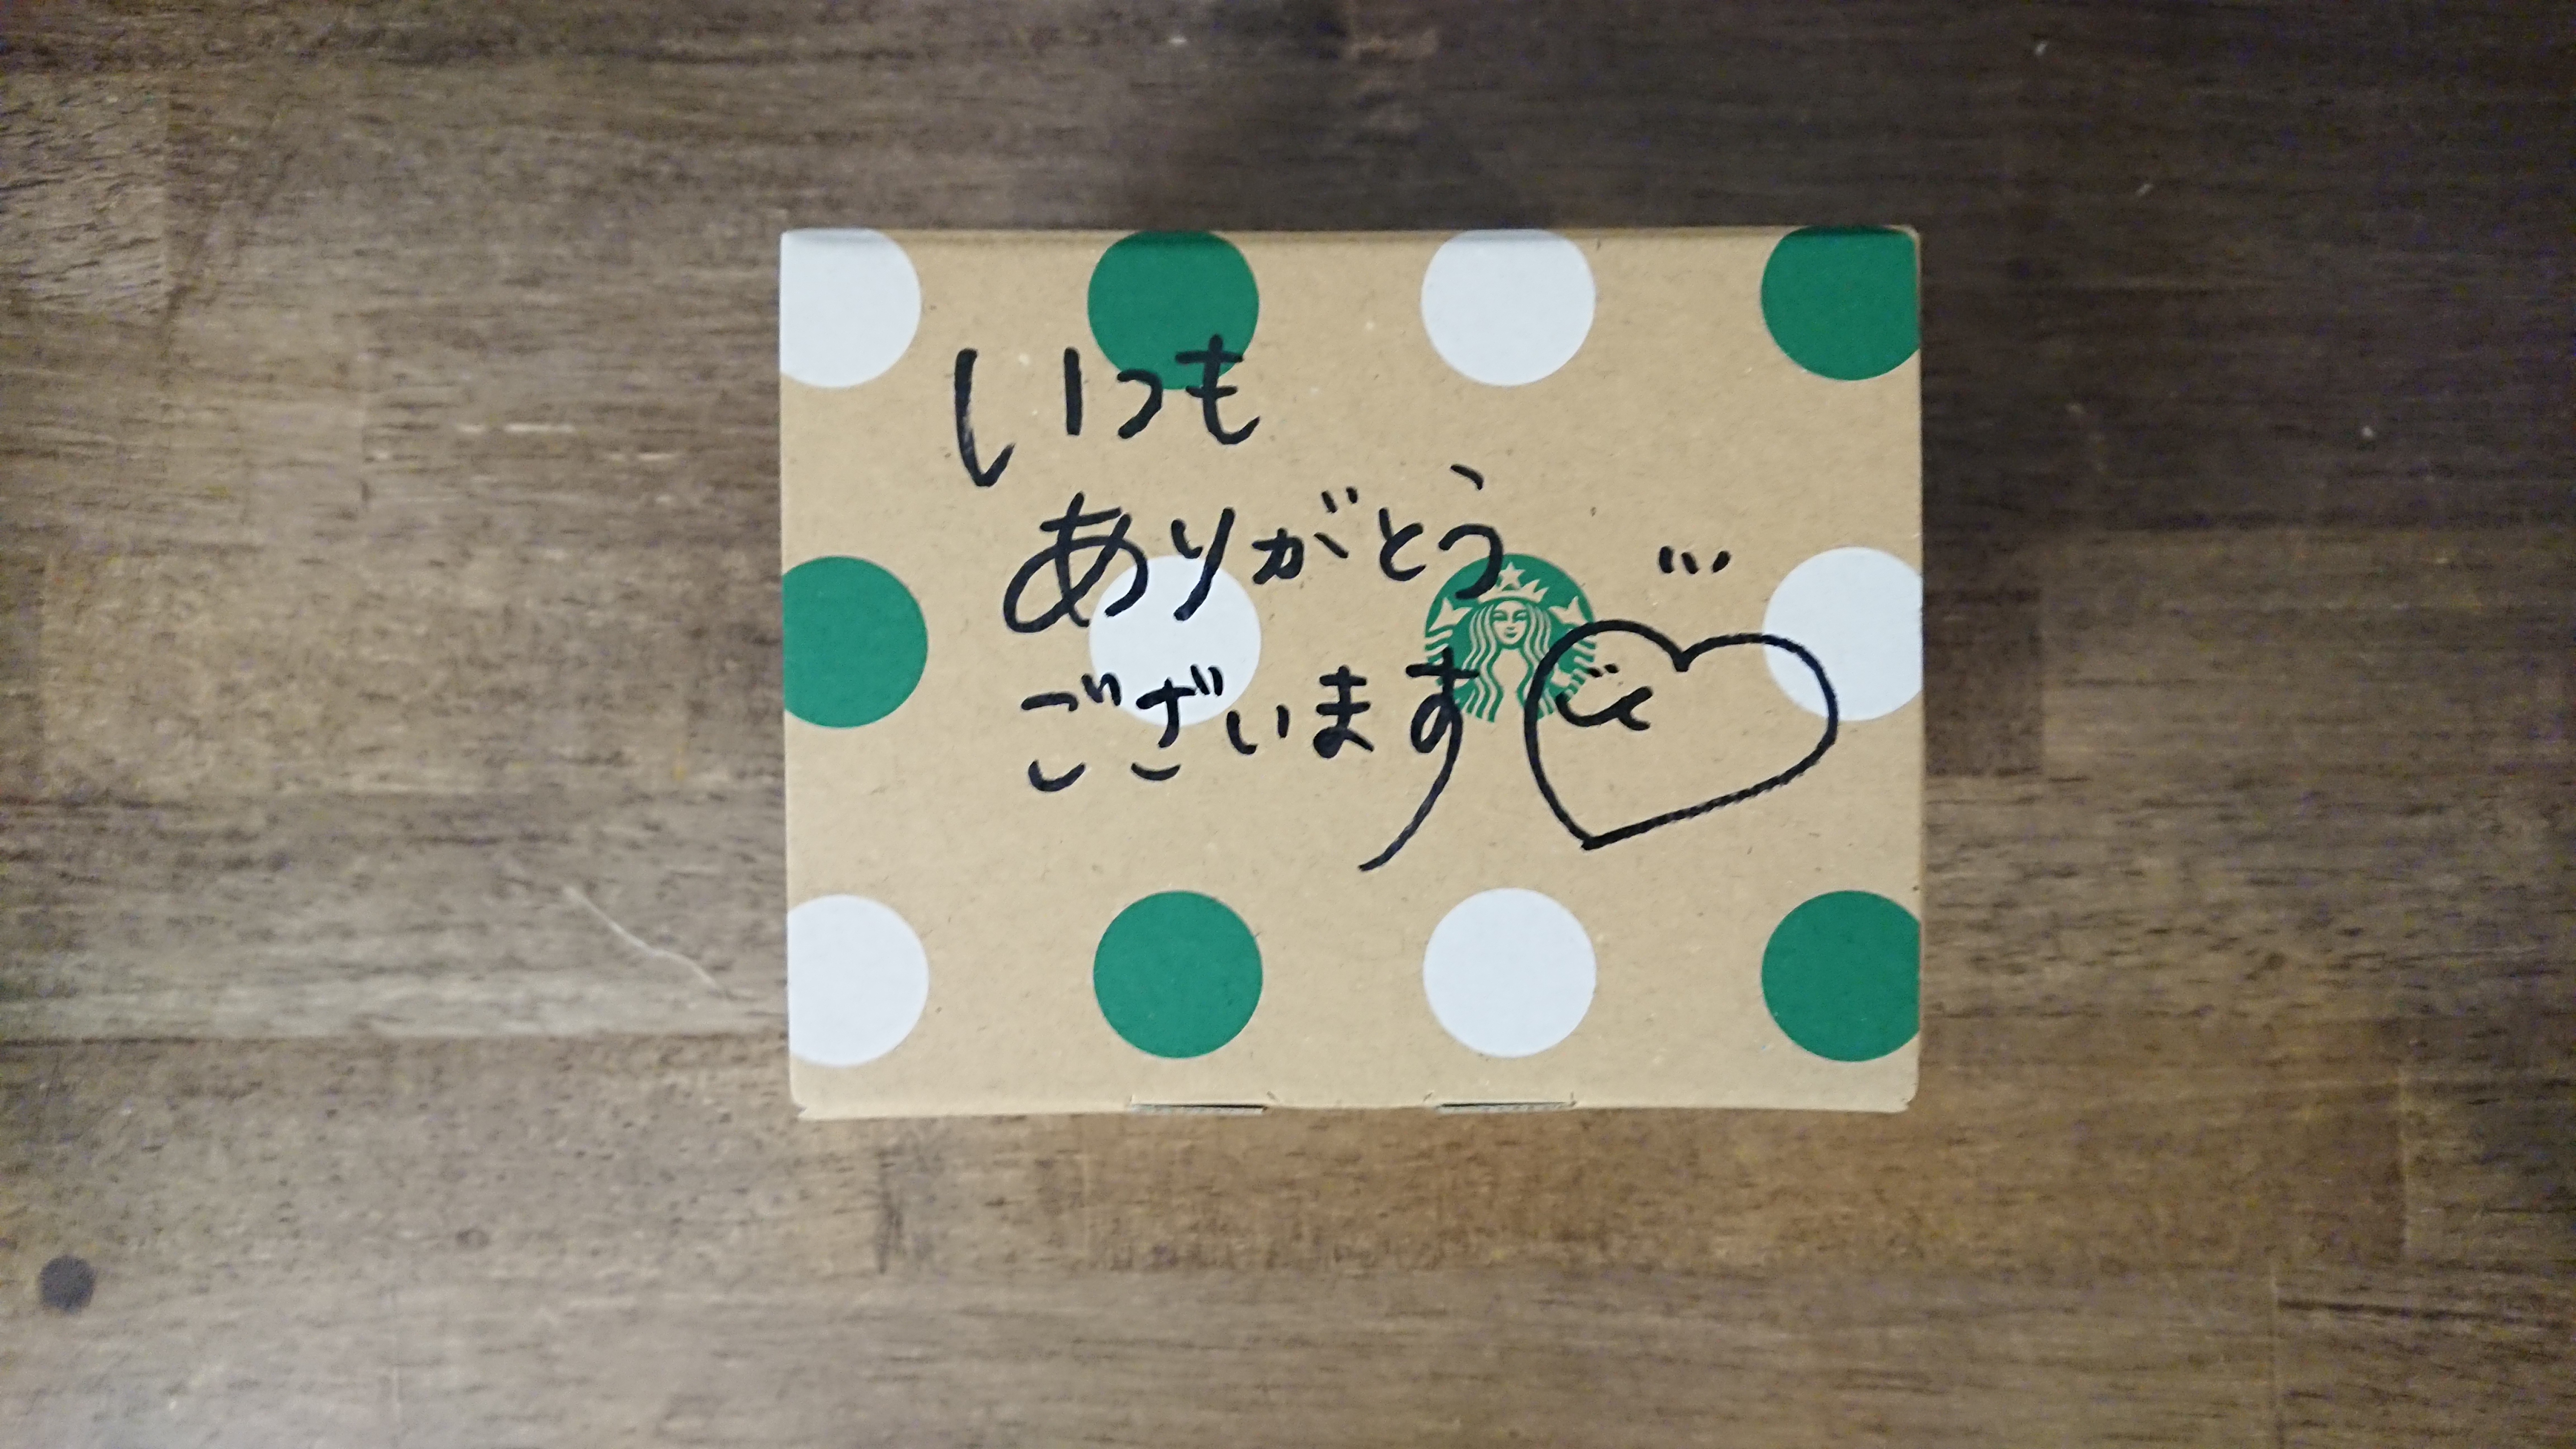 いつも
ありがとう
ございます